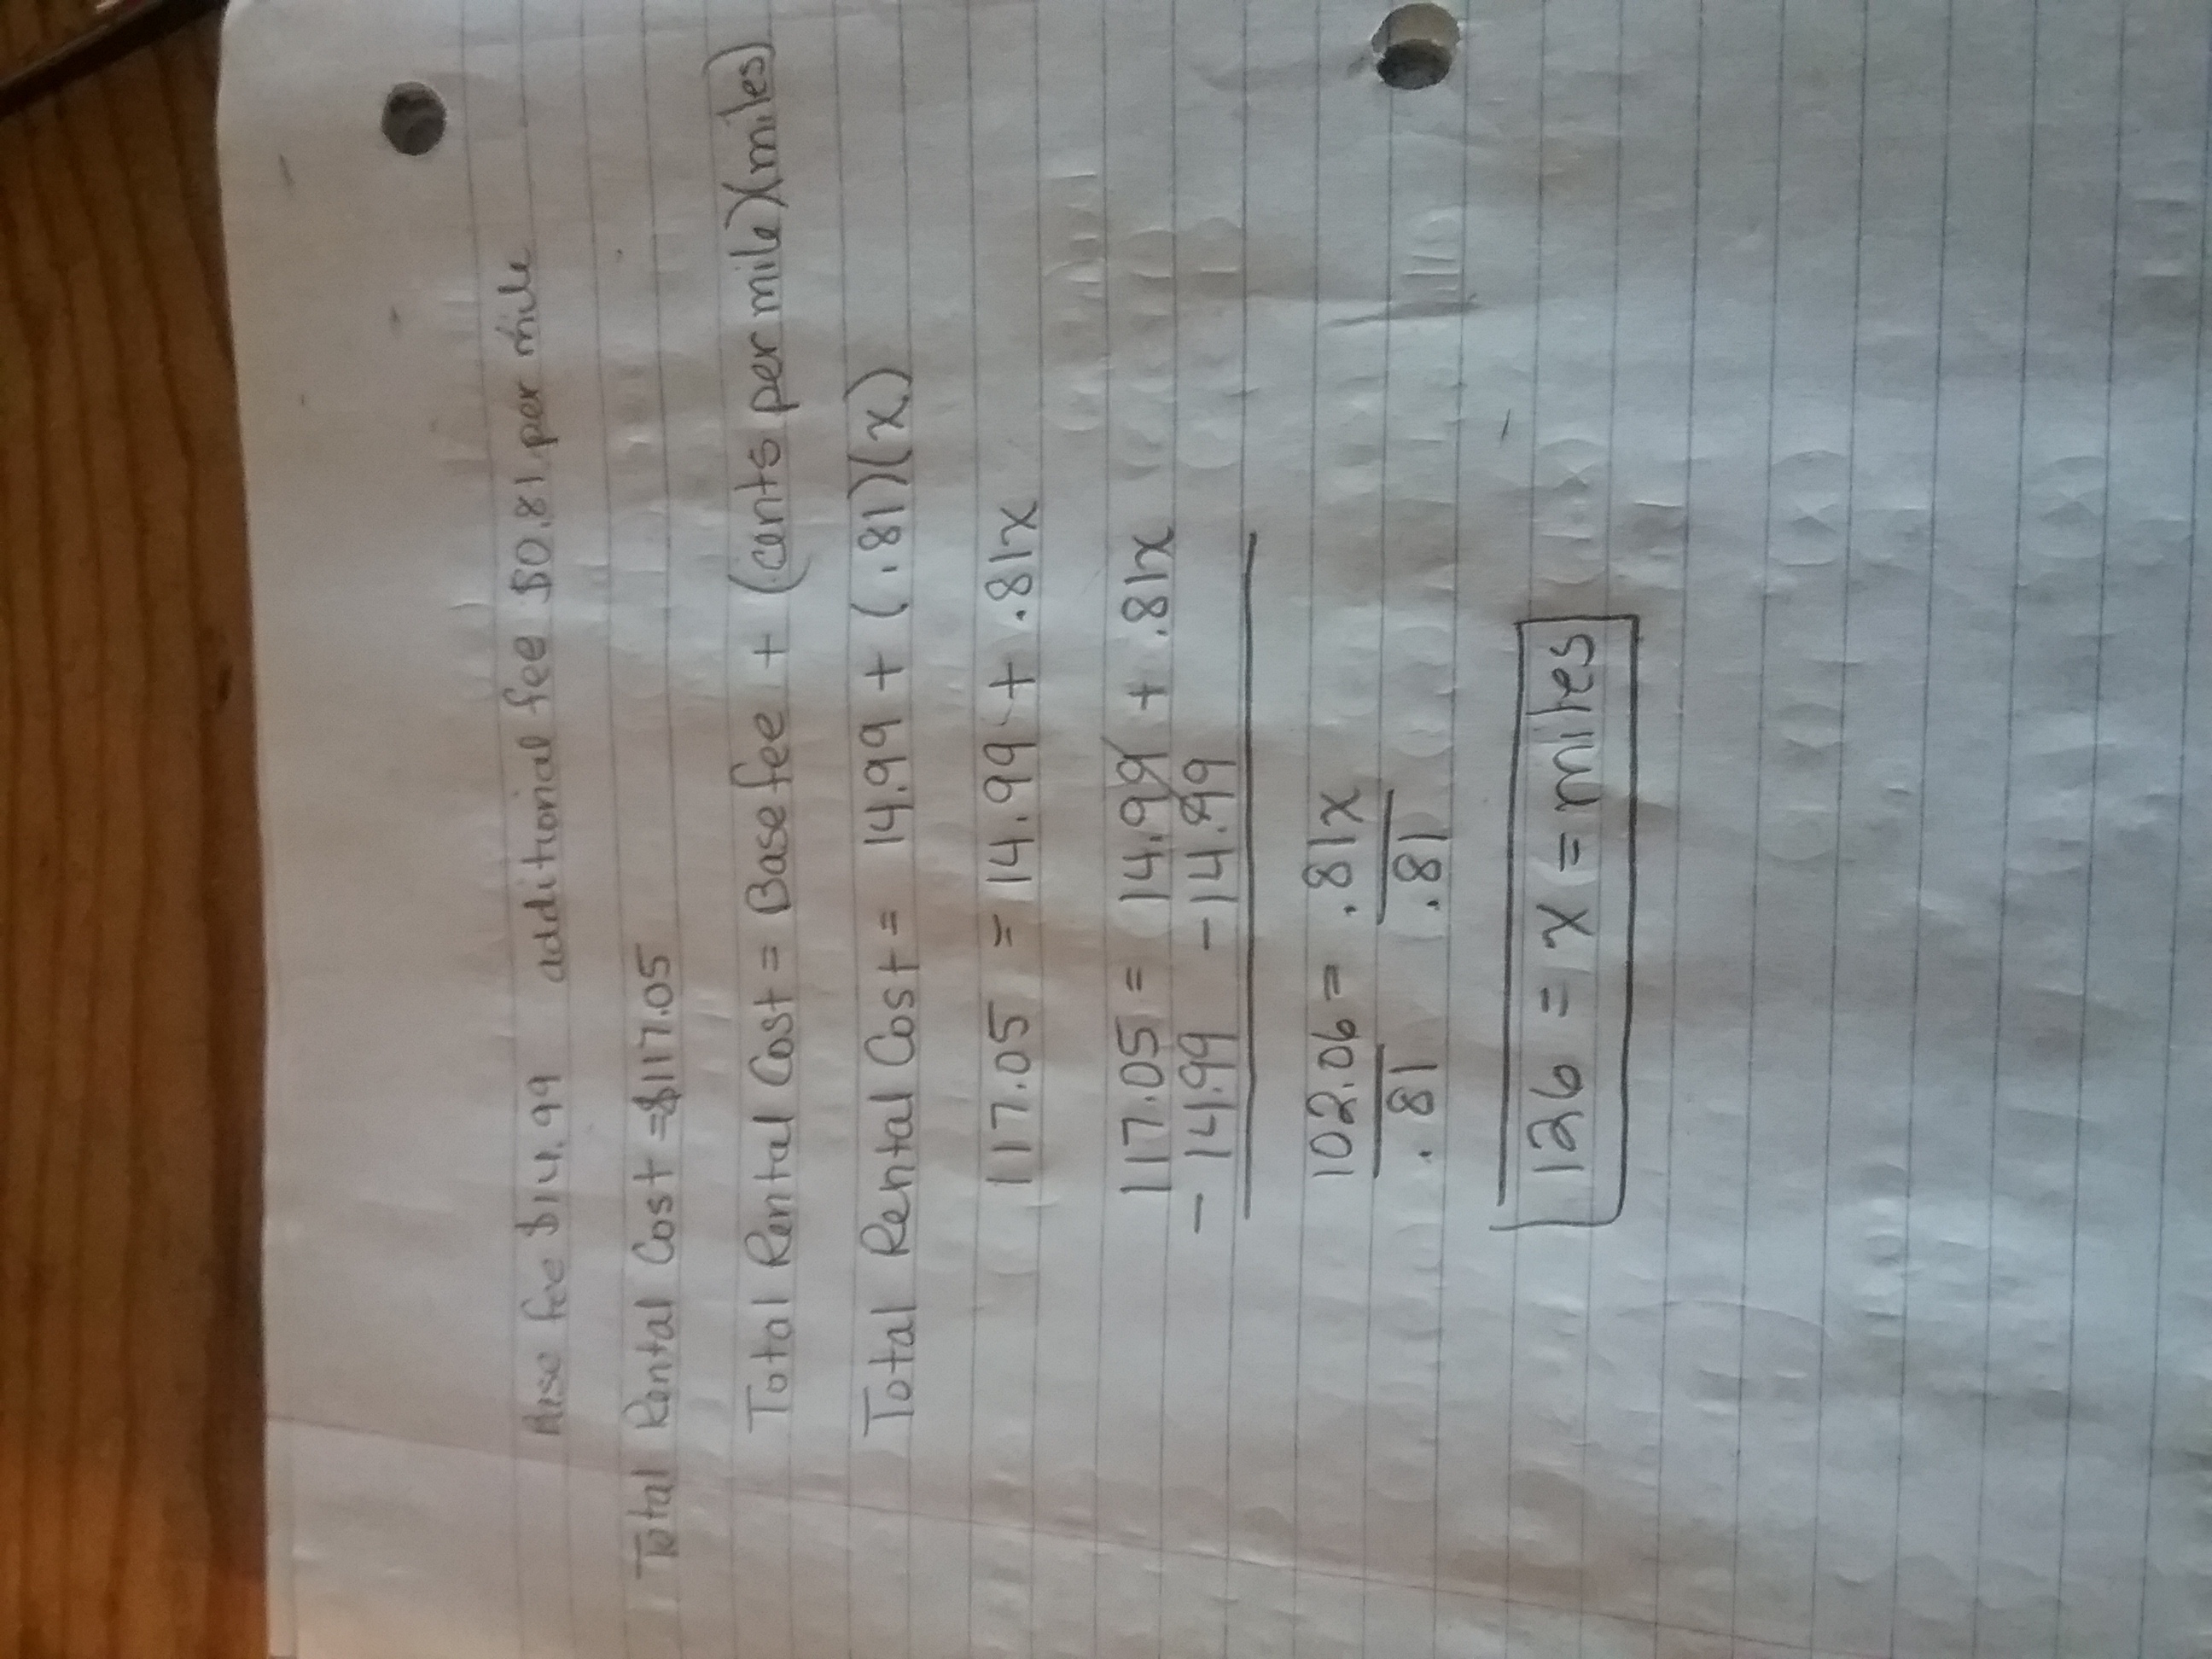 Base fee $14.99 additional fee $0.81 per mile
Total Rental Cost = $117.05
Total Rental Cost = Base fee + (cents per mile)(miles)
Total Rental Cost = 14.99 + (.81)(x)
117.05 = 14.99 + .81x
117.05 = 14.99 + .81x
- 14.99 -14.99
102.06 = .81x
.81 .81
126 = x = miles